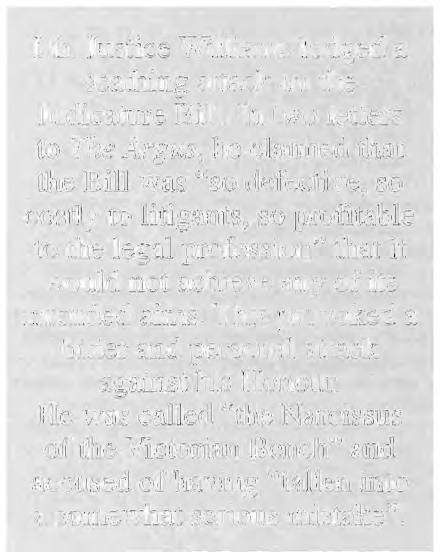 Mr. Justice Williams lodged a
scathing attack on the
Judicature Bill. In two letters
to The Argus, he claimed that
the Bill was "so defective, so
costly to litigants, so profitable
to the legal profession" that it
could not achieve any of its
intended aims. This provoked a
bitter and personal attack
against his Honour.
He was called "the Narcissus
of the Victorian Bench" and
accused of having "fallen into
a somewhat serious mistake".